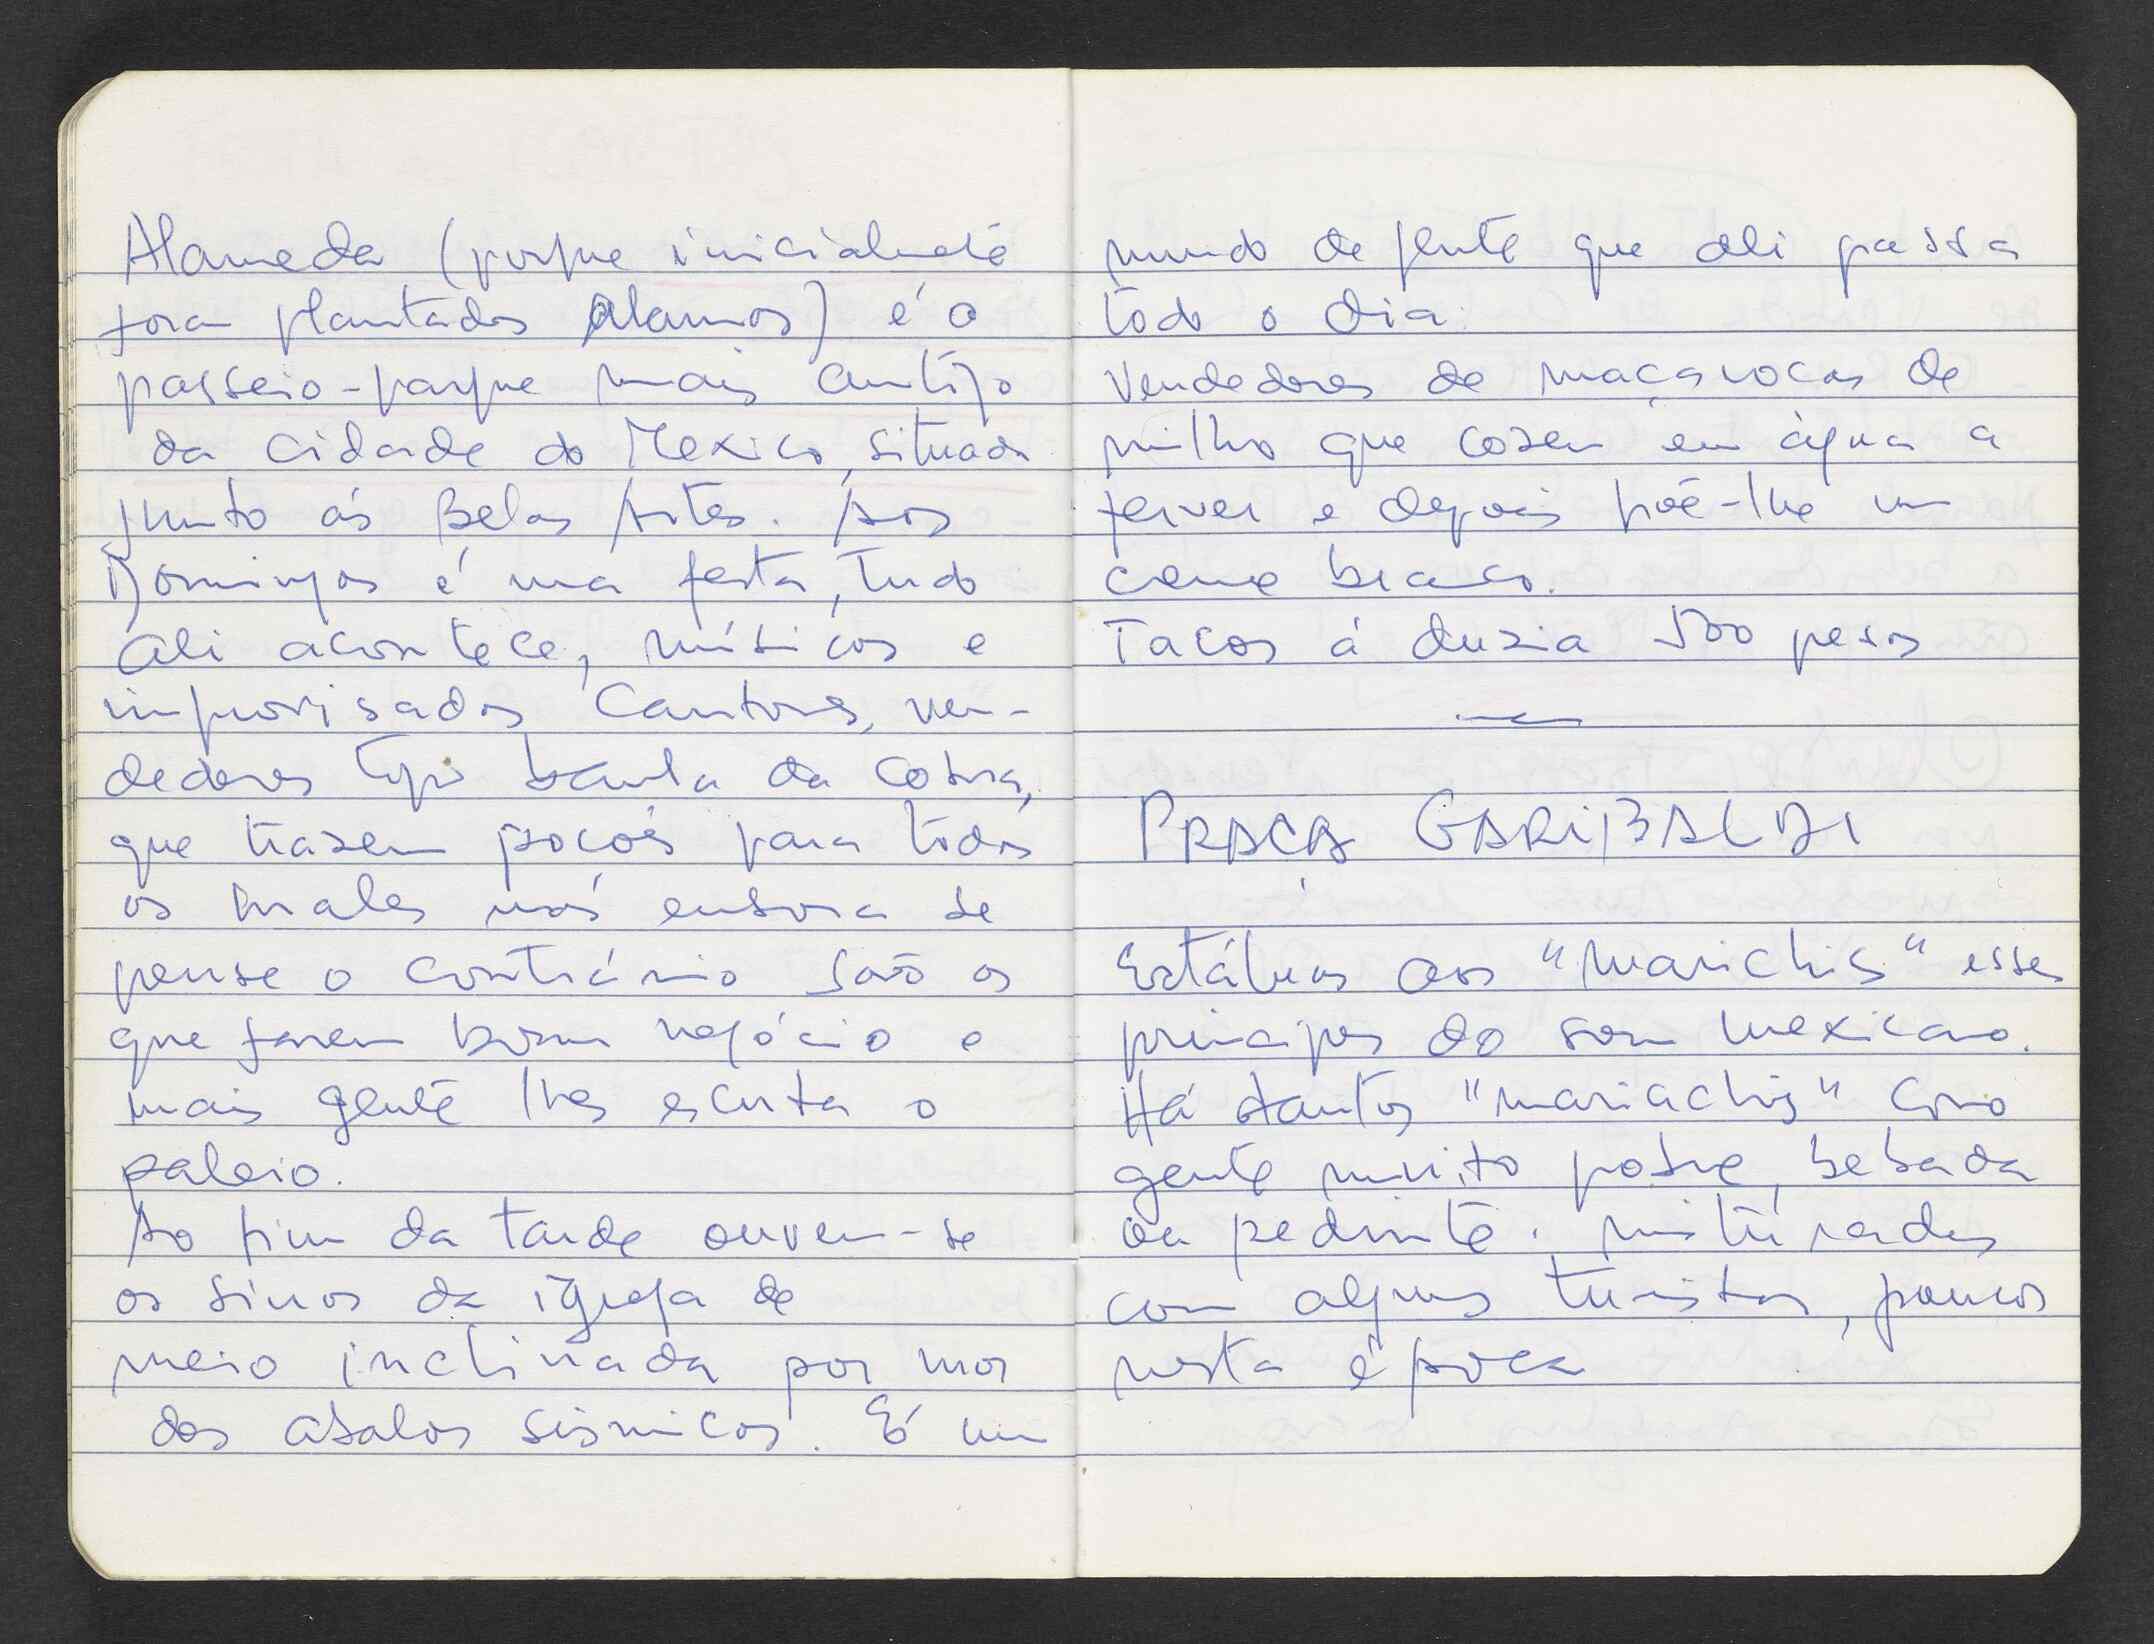 Alameda (porque inicialmete
foram plantados Alamos) é o
passeio-parque mais antigo
da cidade do Mexico, situada
junto ás Belas Artes. Aos
Domingos é uma festa, tudo
ali acontece, músicos e
improvisados cantores, ven-
dedores tipo banha da cobra,
que trazem pocoés para todos
os males mas embora se
pense o contrário saõ os
que fazem bom negócio e
mais gente lhes escuta o
paleio.
Ao fim da tarde ouvem-se
os sinos da igreja de
meio inclinada por mor
dos abalos sismicos. É um
mundo de gente que ali passa
todo o dia.
Vendedores de maçarocas de
milho que cozem em àgua a
ferver e depois poê-lhe um
creme branco.
Tacos á duzia 500 pesos
PRAÇA GARiBALDI
Estátuas aos "marichis" esses
principes do som mexicano.
Há tantos "mariachis" como
gente muito pobre, bebada
ou pedinte. misturados
com alguns turistas, poucos
nesta época